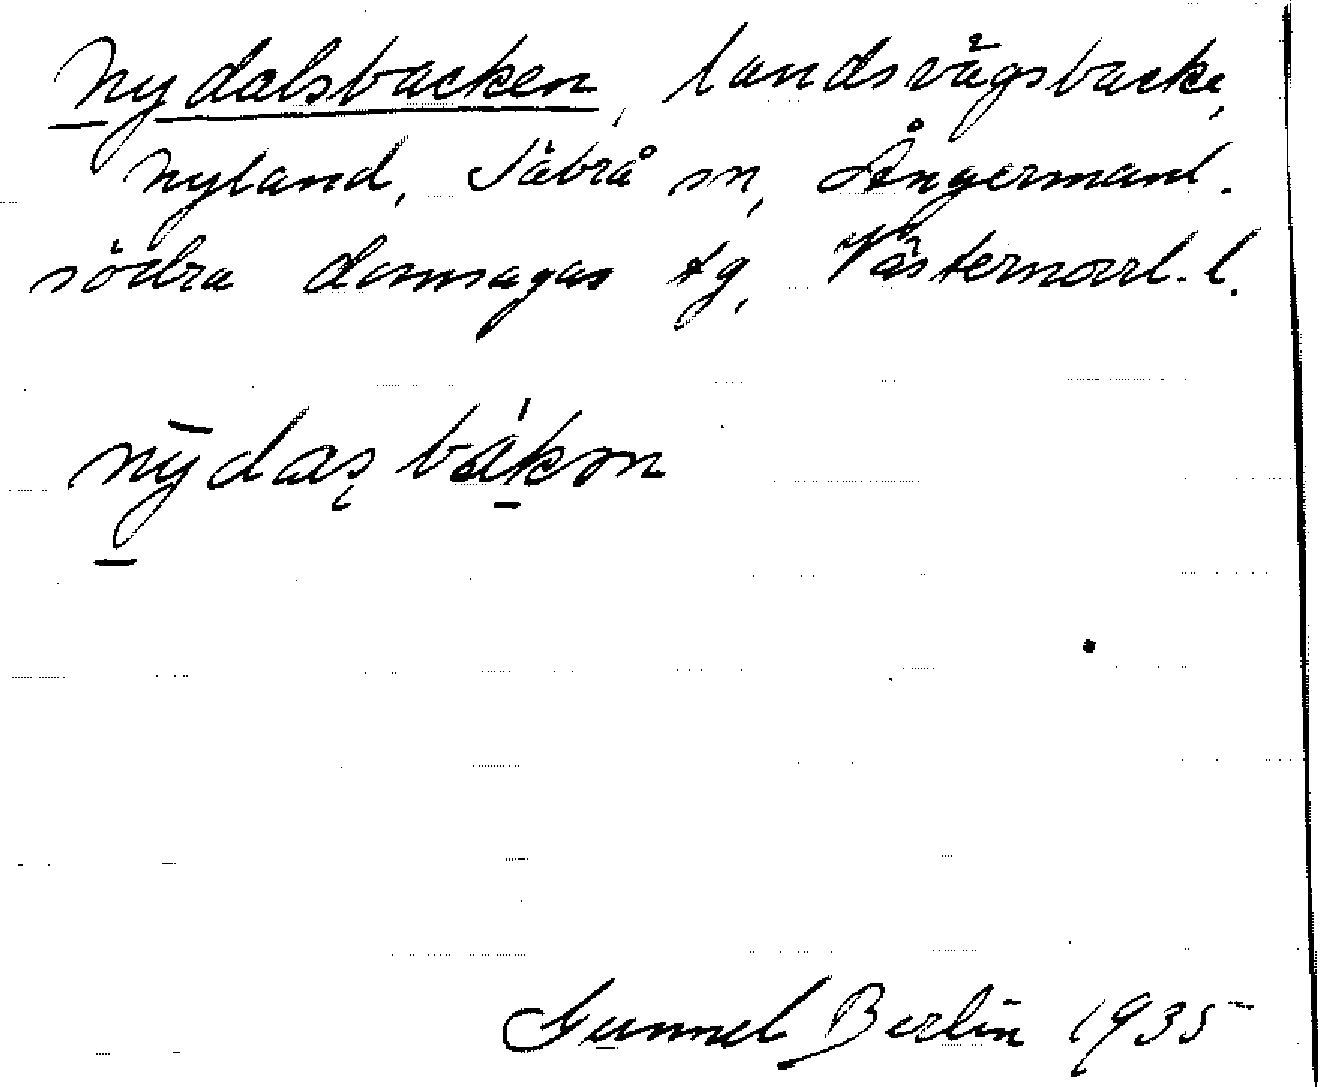 Nydalsbacken, landsvägsbacke,
Nyland, Säbrå sn, Ångermanl.
södra domsagas tg, Västernorrl. l.
nȳdaʂbákən
Gunnel Berlin 1935